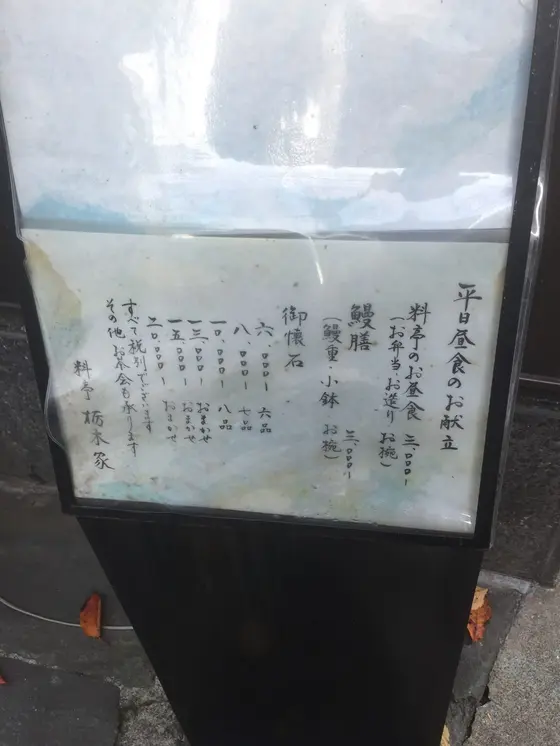 平日昼食のお献立
料亭のお昼食 三、〇〇〇ー
(お弁当、お造り お椀)
鰻膳 三、〇〇〇ー
(鰻重・小鉢 お椀)
御懐石
六、〇〇〇ー 六品
八、〇〇〇ー 七品
一〇、〇〇〇ー 八品
一三、〇〇〇ー おまかせ
一五、〇〇〇ー おまかせ
二〇、〇〇〇ー
すべて税別でございます
その他お茶会も承ります
料亭 栃木家